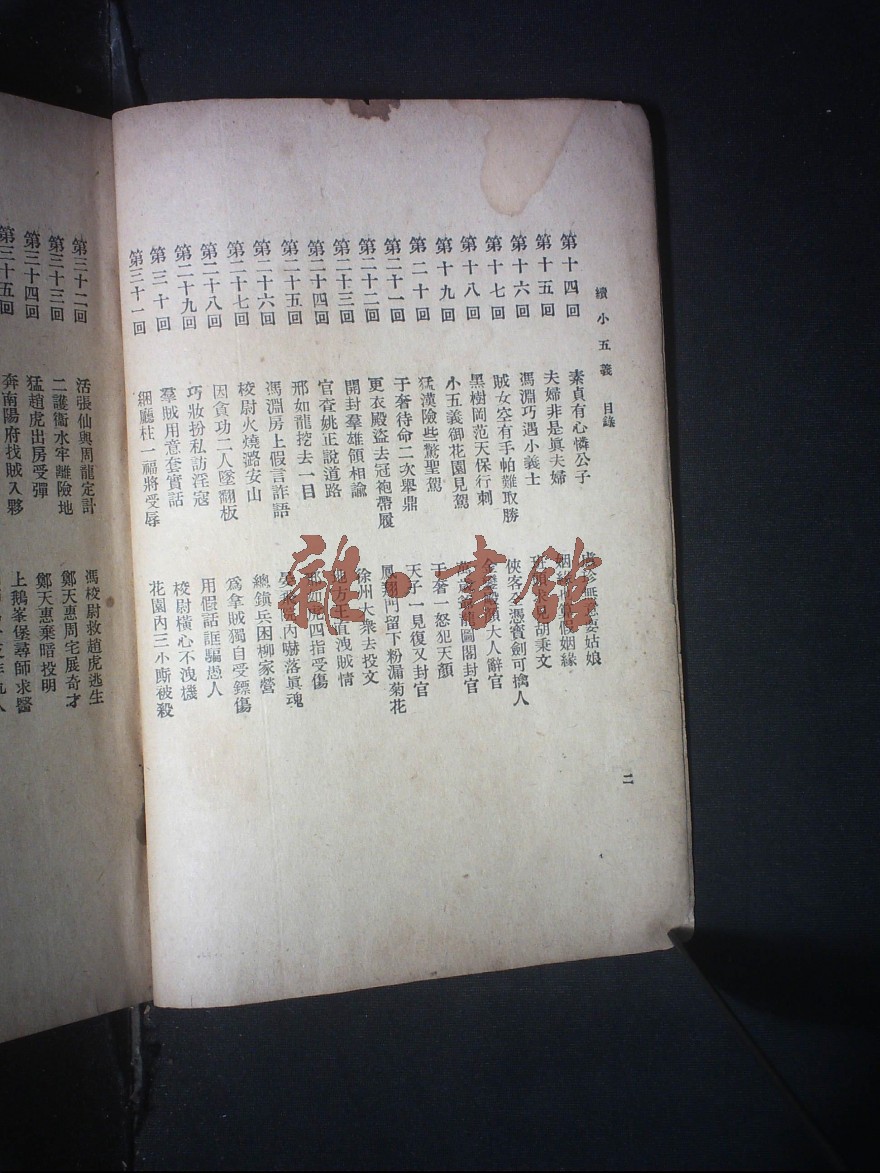 續小五義 目錄 二
第十四回 素貞有心憐公子 無意耍姑娘
第十五回 夫婦非是眞夫婦 姻緣 假姻緣
第十六回 馮淵巧遇小義士 胡秉文
第十七回 賊女空有手帕難取勝 俠客全憑寶劍可擒人
第十八回 黑樹岡范天保行刺 大人辭官
第十九回 小五義御花園見駕 龍圖閣封官
第二十回 猛漢險些驚聖駕 于奢一怒犯天顏
第二十一回 于奢待命二次舉鼎 天子一見復又封官
第二十二回 更衣殿盜去冠袍帶履 鳳翔門留下粉漏菊花
第二十三回 開封羣雄領相諭 徐州大衆去投文
第二十四回 官査姚正說道路 地方王直洩賊情
第二十五回 邢如龍挖去一目 邢如虎四指受傷
第二十六回 馮淵房上假言詐語 晏飛 內嚇落眞魂
第二十七回 校尉火燒潞安山 總鎭兵困柳家營
第二十八回 因貪功二人墜翻板 爲拿賊獨自受鏢傷
第二十九回 巧妝扮私訪淫寇 用假話誆騙愚人
第三十回 羣賊用意套實話 校尉橫心不洩機
第三十一回 綑廳柱一福將受辱 花園內三小厮被殺
第三十二回 活張仙與周龍定計 馮校尉救趙虎逃生
第三十三回 二護衞水牢離險地 鄭天惠周宅展奇才
第三十四回 猛趙虎出房受彈 鄭天惠棄暗投明
第三十五回 奔南陽府找賊入夥 上鵝峯堡尋師求醫
雜·書舘